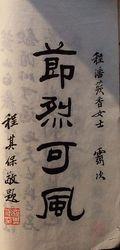 程潘蘋香女士 霸次
節烈可風
程其保敬題